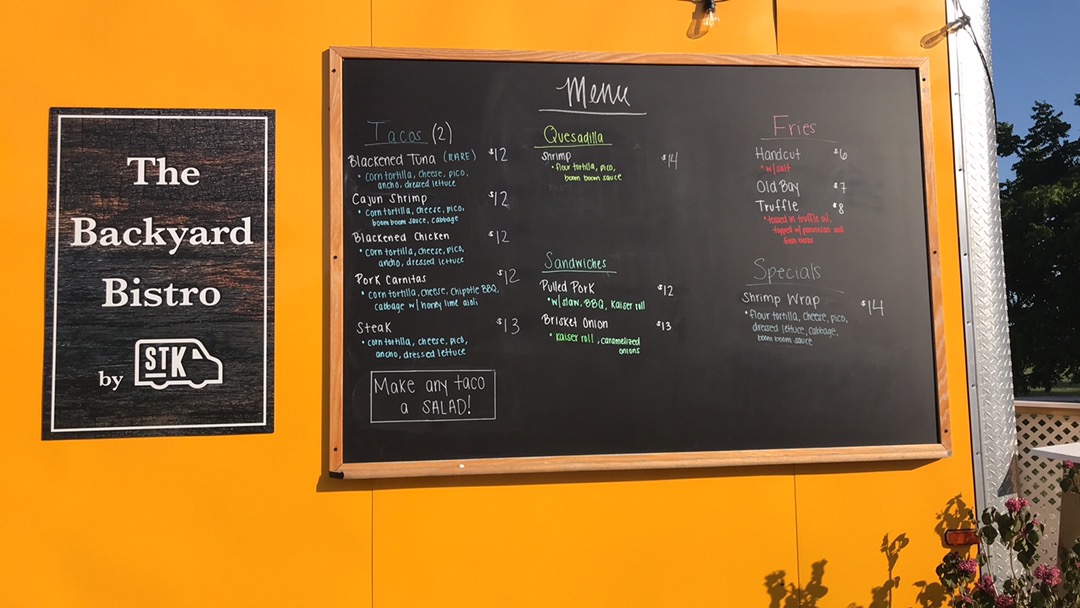 The
Backyard
Bistro
by STK
Menu
Tacos (2)
Blackened Tuna (RARE) $12
• corn tortilla, cheese, pico,
ancho, dressed lettuce
Cajun Shrimp $12
• corn tortilla, cheese, pico,
boom boom sauce, cabbage
Blackened Chicken $12
• corn tortilla, cheese, pico,
ancho, dressed lettuce
Pork Carnitas $12
• corn tortilla, cheese, chipotle BBQ,
cabbage w/ honey lime aioli
Steak $13
• corn tortilla, cheese, pico,
ancho, dressed lettuce
Make any taco
a SALAD!
Quesadilla
Shrimp $14
• flour tortilla, pico,
boom boom sauce
Sandwiches
Pulled Pork $12
• w/ slaw, BBQ, Kaiser roll
Brisket Onion $13
• Kaiser roll, caramelized
onions
Fries
Handcut $6
• w/ salt
Old Bay $7
Truffle $8
• tossed in truffle oil,
topped w/ parmesan and
fresh herbs
Specials
Shrimp Wrap $14
• flour tortilla, cheese, pico,
dressed lettuce, cabbage,
boom boom sauce